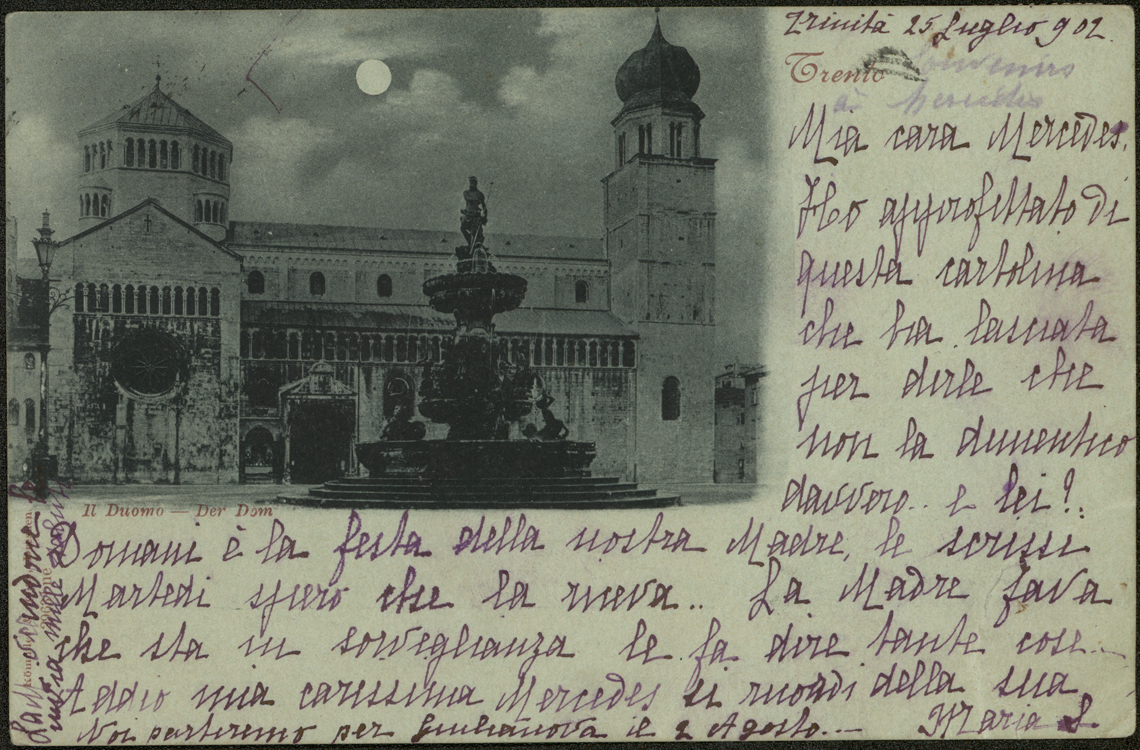 Trinità 25 Luglio 902
Trento
Souvenirs
à Mercédès
Mia cara Mercedes.
Ho approfittato di
questa cartolina
che ha lasciata
per dirle che
non la dimentico
davvero.. e lei?.
Il Duomo — Der Dom
Domani è la festa della nostra Madre, le scrissi
Martedi spero che la riceva.. La Madre Java
che sta in sorveglianza le fa dire tante cose..
Addio mia carissima Mercedes si ricordi della sua
Noi partiremo per Giulianova il 2 Agosto.. — Maria L.
La M.
mille saluti